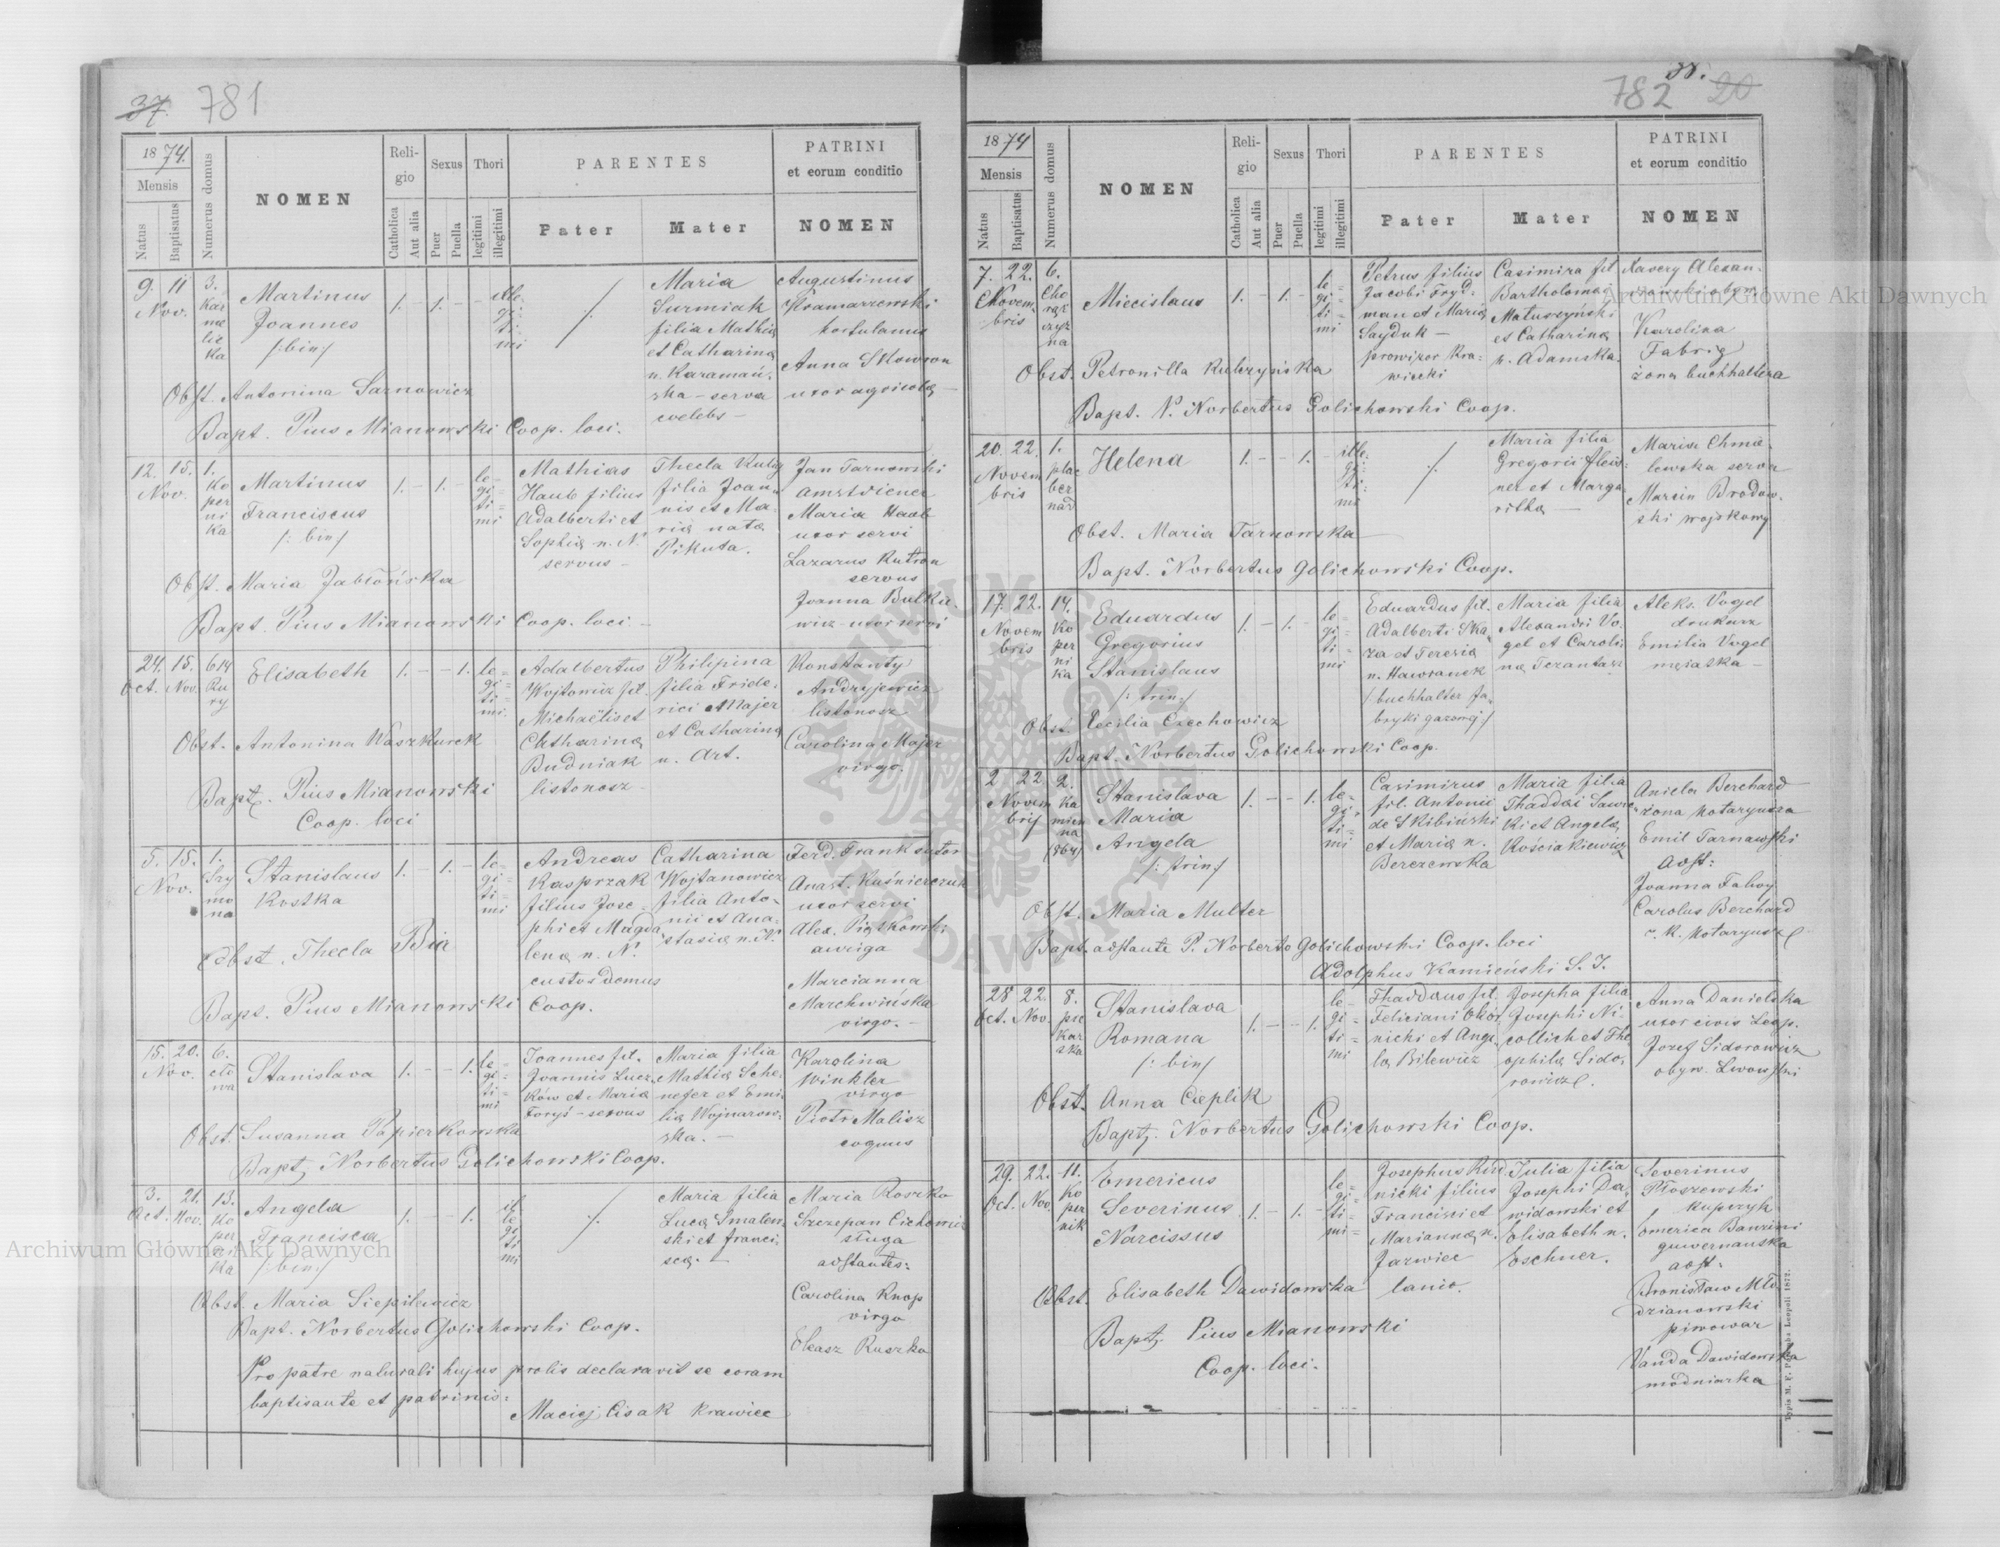 37. 781
1874.
Mensis
Natus
Baptisatus
Numerus domus
NOMEN
Religio
Catholica
Aut alia
Sexus
Puer
Puella
Thori
legitimi
illegitimi
PARENTES
Pater
Mater
PATRINI
et eorum conditio
NOMEN
9. 11 3.
Nov. Kar
me
lic
ka
Martinus
Joannes
/:bin:/
1. - 1. -
ille
gi
ti
mi
Maria
Surmiak
filia Mathiæ
et Catharina
n. Karamań-
ska - serva
celebs -
Augustinus
Kramarzewski
hortulanus
Anna Skowron
uxor agricolæ -
Obst. Antonina Sarnowicz
Bapt. Pius Mianowski Coop. loci.
12. 15. 1.
Nov. Ko
per
ni
ka
Martinus
Franciscus
/: bin:/
1. - 1. -
le-
gi=
ti=
mi
Mathias
Haub filius
Adalberti et
Sophiæ n. N.
servus -
Thecla
filia Joan-
nis et Ma-
riæ natæ
Pikuta.
Jan Tarnowski
Maria Haub
uxor servi
Lazarus Kutron
servus
Joanna Bulkie-
wicz - uxor servi
Obst. Maria Jabłońska
Bapt. Pius Mianowski Coop. loci -
24. 15. 614
Oct. Nov. Ru
ry
Elisabeth
1. - - 1.
le=
gi=
ti=
mi.
Adalbertus
Wojtowicz fil.
Michaëlis et
Catharinæ
Budniak
listonosz
Philipina
filia Fride-
rici Majer
et Catharinæ
n. Art.
Konstanty
Andryjewicz
listonosz
Carolina Majer
virgo.
Obst. Antonina Waszkurek
Bapt. Pius Mianowski
Coop. loci
5. 15. 1.
Nov. Szy
mo
na
Stanislaus
Kostka
1. - 1. -
le=
gi=
ti=
mi
Andreas
Kasprzak
filius Jose-
phi et Magda
lenæ n. N.
custos domus
Catharina
Wojtanowicz
filia Anto-
nii et Ana-
stasiæ n. N.
Ferd. Frank sutor
Anast. Kuśnierczuk
uxor servi
Alex. Piątkowski
auriga
Marcianna
Marchwińska
virgo. -
Obst. Thecla Bia
Bapt. Pius Mianowski Coop.
15. 20. 6.
Nov. cło
wa
Stanislava
1. - - 1.
le-
gi=
ti=
mi
Joannes fil.
Joannis Lucz-
ków et Mariæ
Foryś - servus
Maria filia
Mathiæ Sche-
nefer et Emi-
liæ Wojnarow-
ska. -
Karolina
Winkler
virgo
Piotr Malisz
coquus
Obst. Susanna Papierkowska
Bapt. Norbertus Golichowski Coop.
3. 21. 13.
Oct. Nov. Ko
per
ni
ka
Angela
Francisca
/:bin:/
1. - - 1.
il
le
gi
ti
mi
Maria filia
Lucæ Smalew-
ski et Franci-
scæ. -
Maria Roszko
Szczepan Cichowicz
sługa
adstantes:
Carolina Knop
virgo
Eleasz Ruszka
Obst. Maria Siepilewicz
Bapt. Norbertus Golichowski Coop.
Pro patre naturali hujus prolis declaravit se coram
baptisante et patrinis:
Maciej Cisak krawiec
782 38. 20
1874
Mensis
Natus
Baptisatus
Numerus domus
NOMEN
Religio
Catholica
Aut alia
Sexus
Puer
Puella
Thori
legitimi
illegitimi
PARENTES
Pater
Mater
PATRINI
et eorum conditio
NOMEN
7. 22. 6.
Novem-
bris
Cho
rąż
czyz
na
Miecislaus
1. - 1. -
le
gi=
ti=
mi
Petrus filius
Jacobi Fryd-
man et Mariæ
Sayduk -
prowizor kra-
wiecki
Casimira fil.
Bartholomæi
Matuszyński
et Catharinæ
n. Adamska.
Xawery Alexan-
Karolina
Fabrig
żona buchhaltera
Obst. Petronilla Kulczyńska
Bapt. N. Norbertus Golichowski Coop.
20. 22. 1.
Novem
bris
plac
ber
nad
Helena
1. - - 1.
ille-
gi=
ti=
mi
Maria filia
Gregorii Fleis-
ner et Marga-
rithæ -
Maria Chmie-
lewska serva
Marcin Brodow-
ski wojskowy
Obst. Maria Tarnowska
Bapt. Norbertus Golichowski Coop.
17. 22. 14.
Novem
bris
Ko
per
ni
ka
Eduardus
Gregorius
Stanislaus
/: trin:/
1. - 1. -
le-
gi=
ti=
mi
Eduardus fil.
Adalberti Ska-
za et Teresiæ
n. Hawranek
/buchhalter fa-
bryki gazowej/
Maria filia
Alexandri Vo-
gel et Caroli-
næ Terantarz
Aleks. Vogel
drukarz
Emilia Vogel
męiaska -
Obst. Cecilia Czechowicz
Bapt. Norbertus Golichowski Coop.
2 22 2.
Novem
bris
Ka
mien
na
(864)
Stanislava
Maria
Angela
/: trin:/
1. - - 1.
le-
gi-
ti=
mi
Casimirus
fil. Antonii
de Skibiński
et Mariæ n.
Berezowska
Maria filia
Thaddæi Sawic-
ki et Angelæ
Kościakiewicz
Aniela Berchard
żona Notaryusza
Emil Tarnawski
adst:
Joanna Fahoy
Carolus Berchard
c. k. Notaryusz
Obst. Maria Multer
Bapt. adstante P. Norberto Golichowski Coop. loci
Adolphus Kamieński S. J.
28 22. 8.
Oct. Nov. pie
kar
ska
Stanislava
Romana
/: bin:/
1. - - 1.
le-
gi=
ti-
mi
Thaddæus fil.
Feliciani Okor-
nicki et Ange-
læ Bilewicz
Josepha filia
Josephi Ni-
collich et The-
ophilæ Sido-
rowicz.
Anna Danielska
uxor civis Leop.
Jozef Sidorowicz
obyw. Lwowski
Obst. Anna Cieplik
Bapt. Norbertus Golichowski Coop.
29. 22. 11.
Oct. Nov. Ko
per
nik
Emericus
Severinus
Narcissus
1. - 1. -
le-
gi=
ti=
mi=
Josephus Rud-
nicki filius
Francisci et
Mariannæ n.
Jazwiec
lanio.
Julia filia
Josephi Da-
widowski et
Elisabeth n.
Eschner.
Severinus
Płoszewski
kupczyk
Emerica Banzini
guwernantka
adst:
Bronisław Mło
dzianowski
piwowar
Vanda Dawidowska
modniarka
Obst. Elisabeth Dawidowska
Bapt. Pius Mianowski
Coop. loci.
Typis M. F. Poremba Leopoli 1872.
Archiwum Główne Akt Dawnych
Archiwum Główne Akt Dawnych